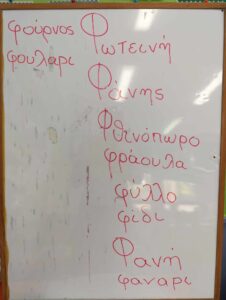 φούρνος
φουλαρι
Φωτεινή
Φάνης
Φθινόπωρο
φράουλα
φύλλο
φίδι
Φανή
φαναρι